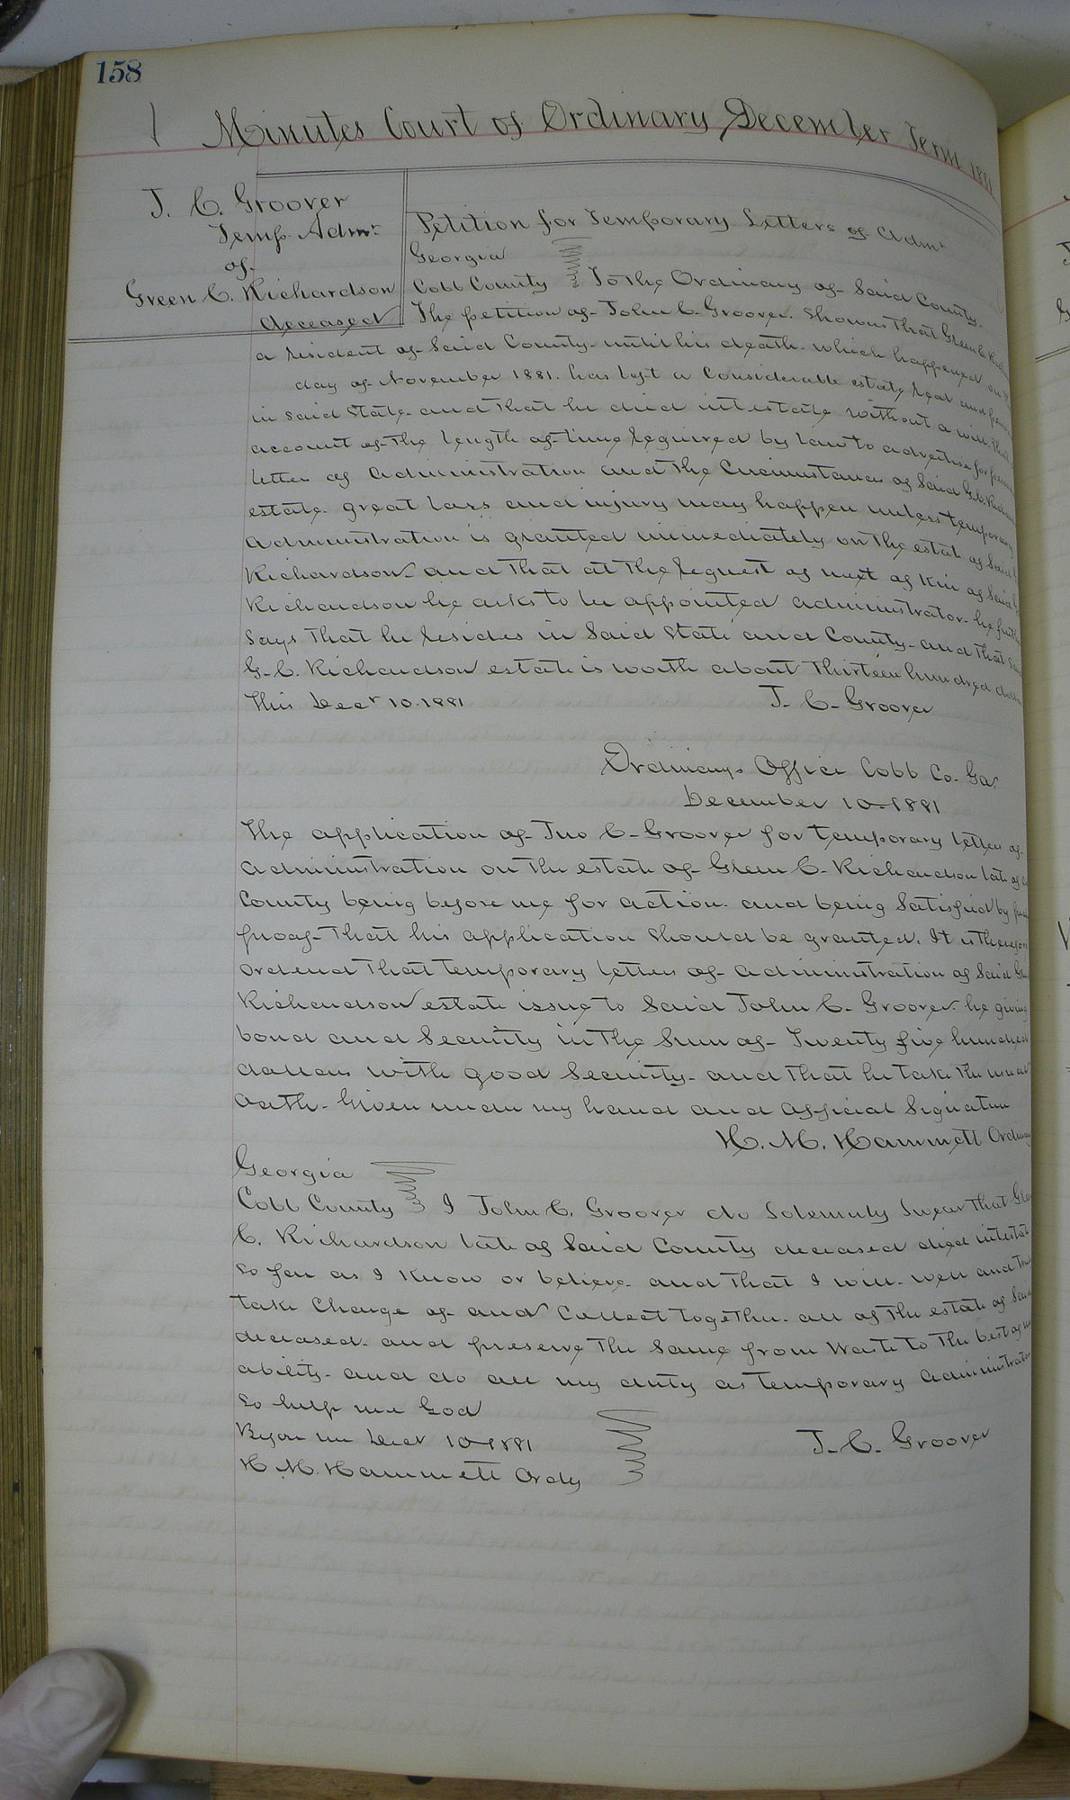 158
Minutes Court of Ordinary December Term 1881
J. C. Groover
Temp. Admr.
of
Green C. Richardson
deceased
Petition for Temporary Letters of Admr
Georgia
Cobb County To the Ordinary of Said County.
The petition of John C. Groover. Shows That Green C.
a resident of Said County until his death. which happened on
day of November 1881. has left a Considerable estate real and
in said State. and that he died intestate without a will that
account of the length of time required by law to advertise for
letters of Administration and the Circumstances of Said G.C.
estate. great loss and injury may happen unless temporary
Administration is granted immediately on the estate of Said
Richardson and that at the request of next of Kin of Said
Richardson he asks to be appointed administrator. he further
says that he resides in Said State and County. and that
G. C. Richardson estate is worth about Thirteen hundred
This Decr 10. 1881
J. C. Groover
Ordinarys Office Cobb Co. Ga.
December 10 1881
The application of Jno C. Groover for temporary letters of
Administration on the estate of Green C. Richardson late of
County being before me for action. and being Satisfied by
proof That his application Should be granted. It is Therefore
ordered That temporary letters of Administration of Said
Richardson estate issue to Said John C. Groover. he giving
bond and Security in the Sum of Twenty five hundred
dollars with good Security. and that he take the usual
oath. Given under my hand and official Signature
H. M. Hammett Ordinary
Georgia
Cobb County I John C. Groover do Solemnly Swear That
C. Richardson late of Said County deceased died intestate
so far as I Know or believe. and that I will. well and
take Charge of and Collect together. all of the estate of
deceased. and preserve the Same from Waste to the best of
ability. and do all my duty as temporary Administrator
So help me God
Before me Decr 10 1881
J. C. Groover
H. M. Hammett Ordy